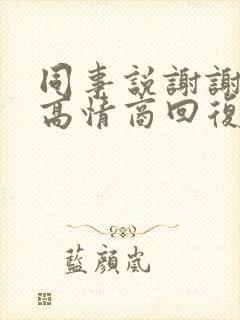 同事說謝謝
高情商回復
藍顏嵐